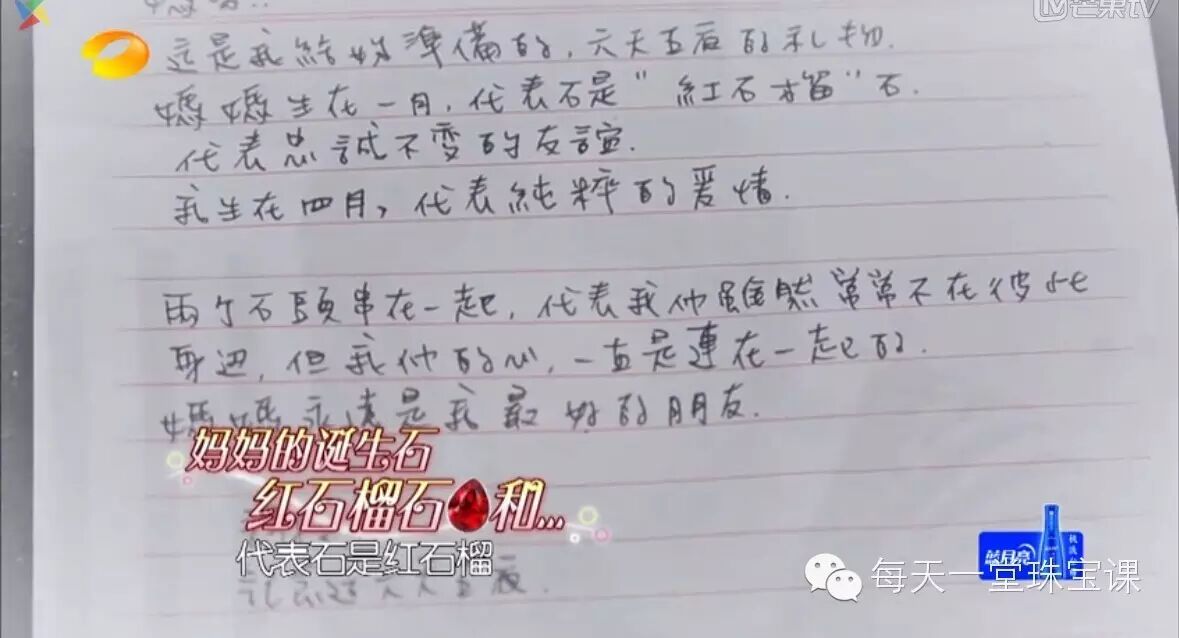 芒果TV
这是我給妳準備的,六天五夜的礼物.
媽媽生在一月,代表石是"紅石榴"石.
代表忠誠不变的友誼.
我生在四月,代表純粹的爱情.
兩个石頭串在一起,代表我們雖然常常不在彼此
身边,但我們的心,一直是連在一起的.
媽媽永遠是我最好的朋友.
妈妈的诞生石
红石榴石和...
代表石是红石榴
蓝月亮
每天一堂珠宝课